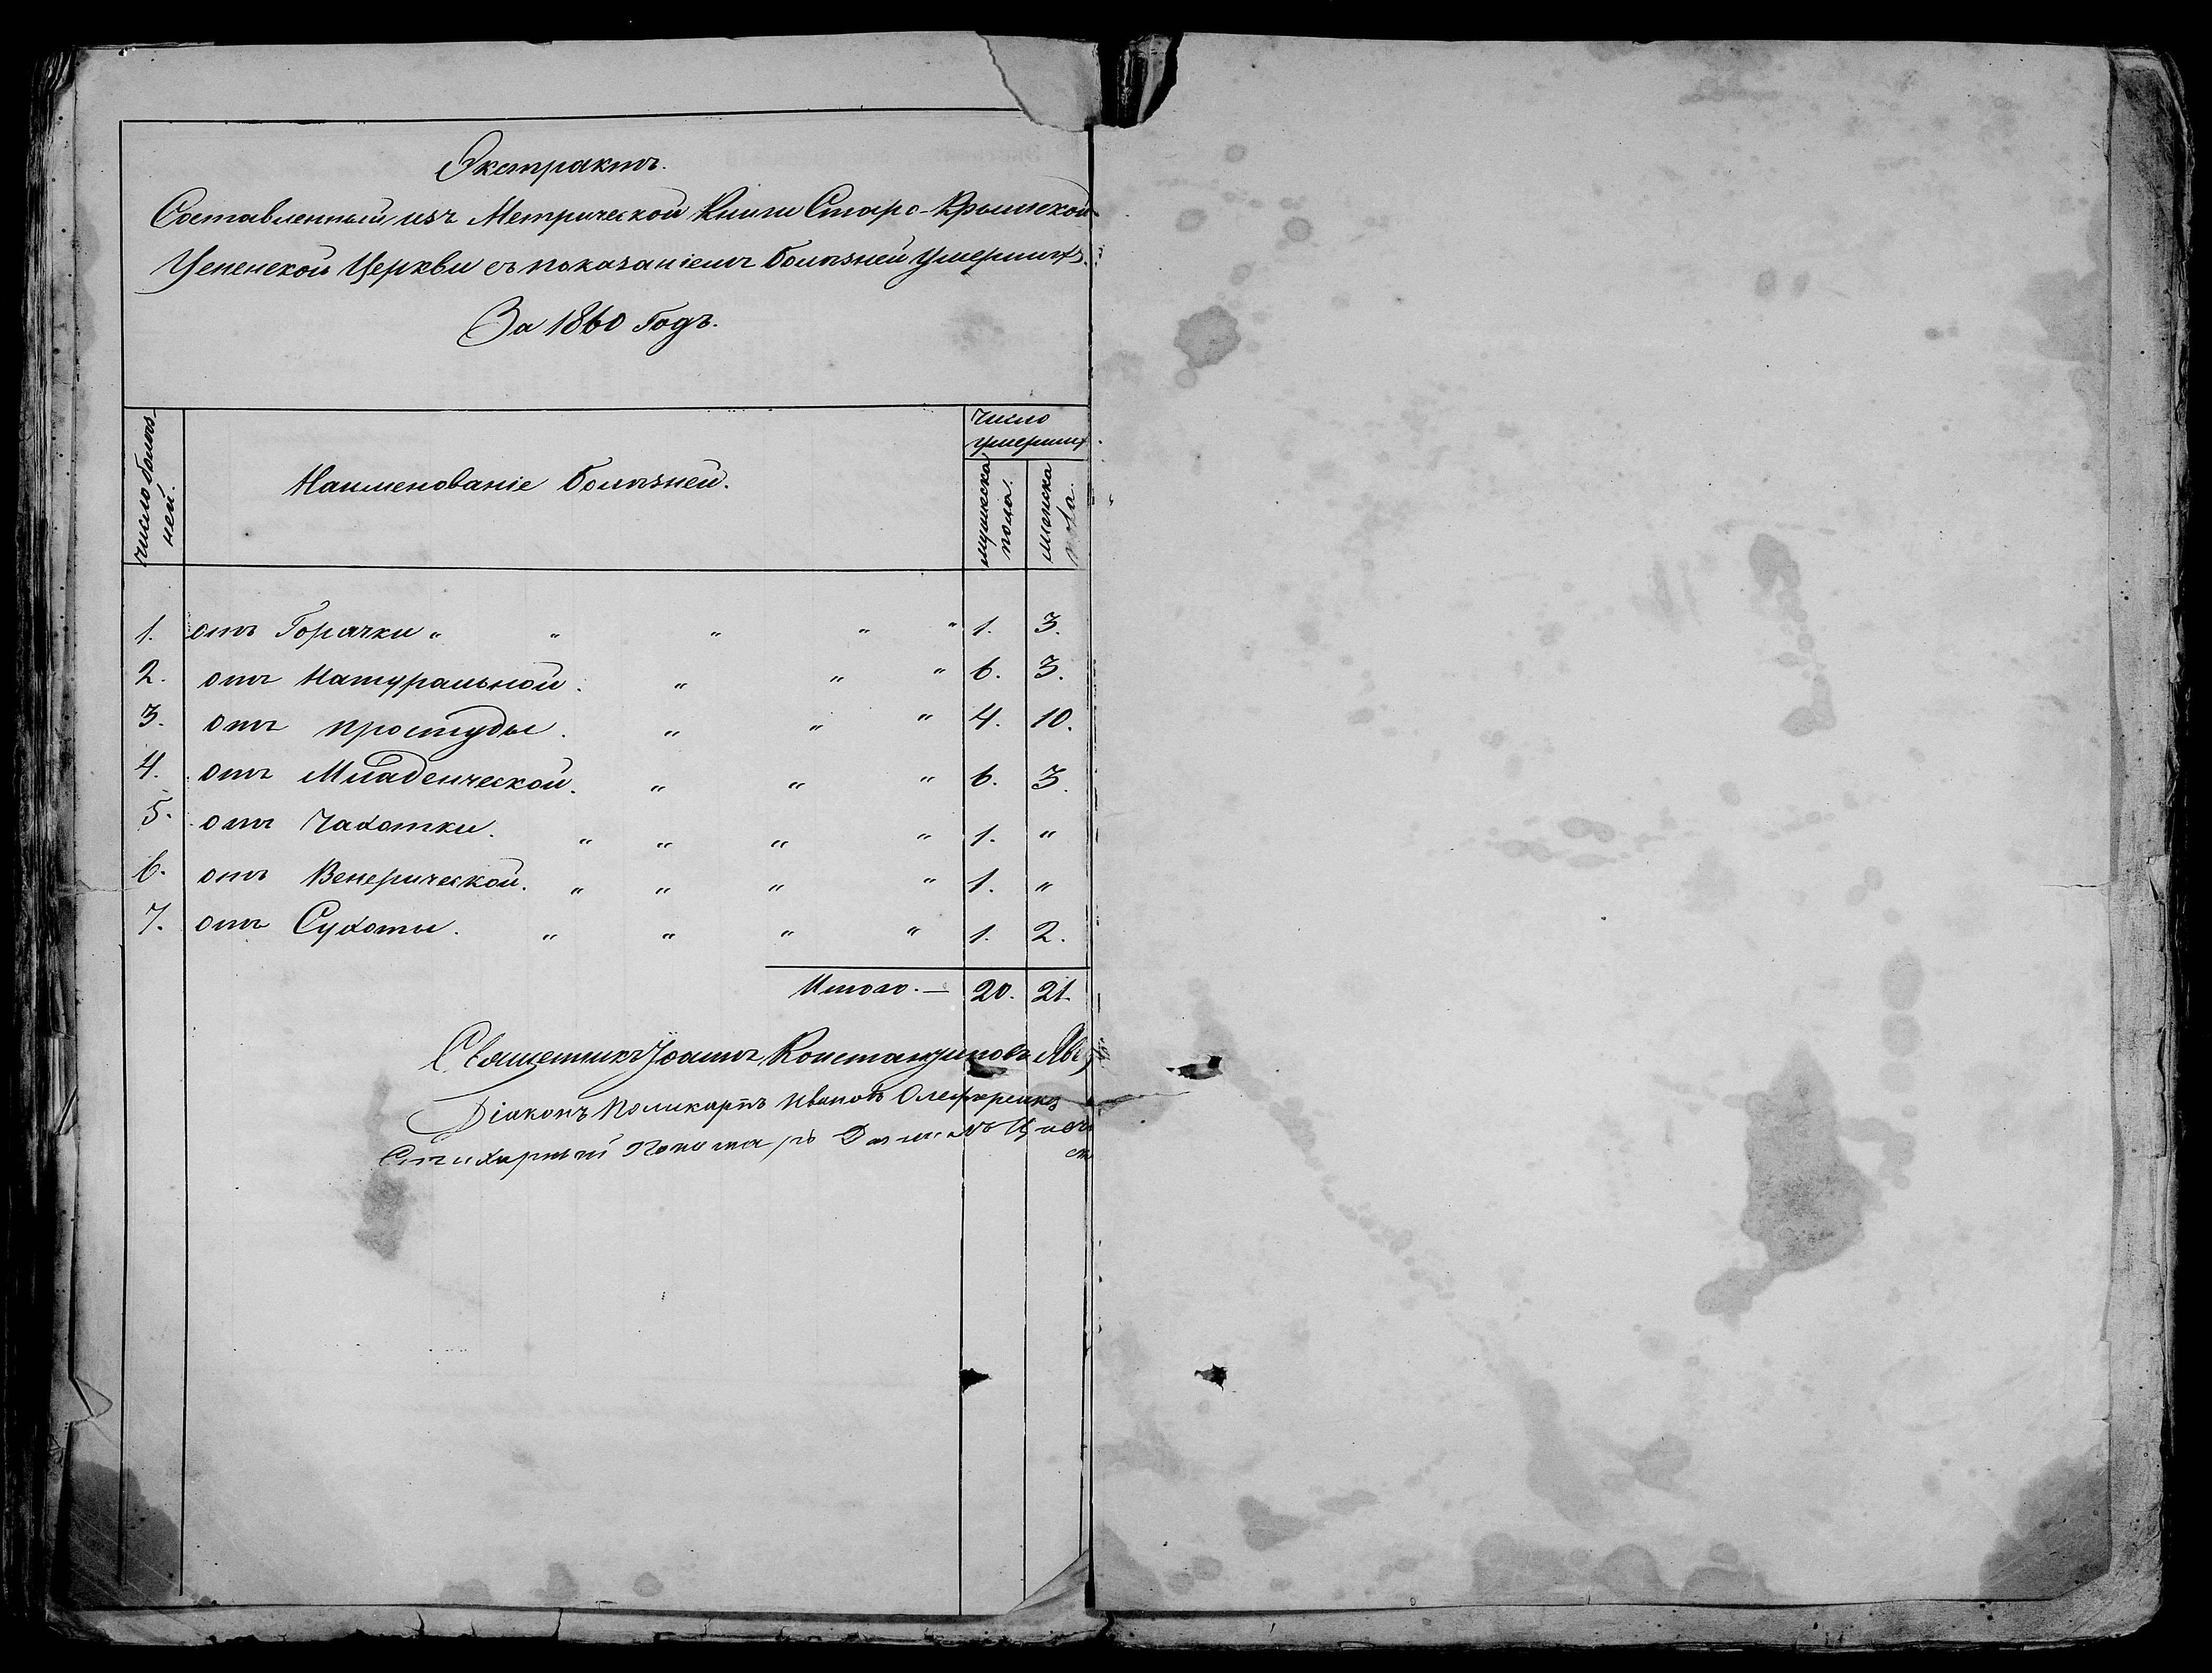 Экстрактъ.
Составленный изъ Метрической Книги Старо-Крымской
Успенской Церкви съ показаніемъ болѣзней умершихъ.
За 1860 Годъ.
число болѣз-
ней.
Наименованіе болѣзней.
Число
умерших
мужеска
пола.
женска
пола.
1. отъ Горячки " " " " " 1. 3.
2. отъ Натуральной. " " " 6. 3.
3. отъ простуды. " " " 4. 10.
4. отъ Младенческой. " " " 6. 3.
5. отъ Чахотки. " " " " 1. "
6. отъ Венерической. " " " " 1. "
7. отъ Сухоты. " " " " 1. 2.
Итого. — 20. 21.
Священникъ Іоаннъ Константиновъ
Діаконъ Поликарпъ Ивановъ
Стихарный Пономарь